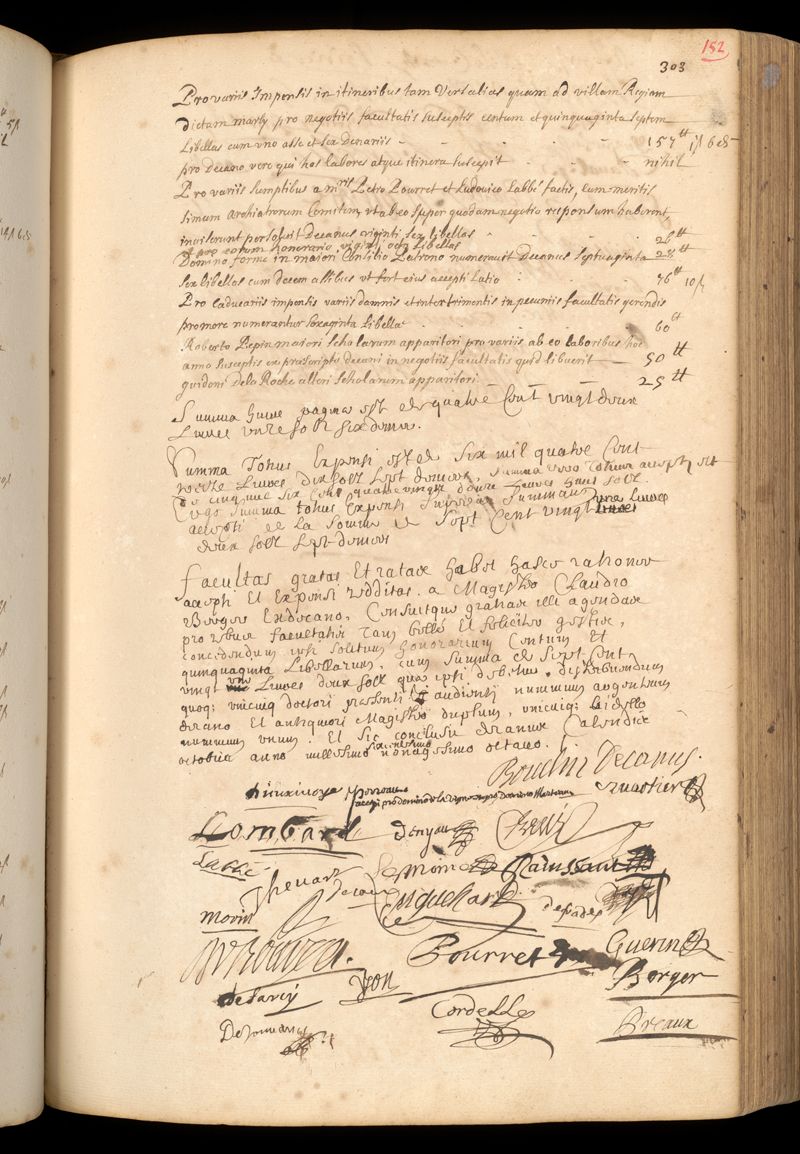 182
303
Pro variis Impensis in itineribus tam Versalias quam ad villam Regiam
dictam marly pro negotiis facultatis susceptis centum et quinquaginta septem
Libellas cum uno asse et sex denariis - - - 157 tt 1s 6d
pro decano vero qui hos labores atque itinera suscepit - - - nihil
Pro variis sumptibus a mris Petro Pourret et Ludovico Labbé factis, cum meritis
simum Archiatrorum Comitem, vt ab eo super quodam negotio responsum haberent,
inviserunt persolvit Decanus viginti sex libellas - - 26 tt
et pro eorum honorario viginti octo Libellas 28 tt
Domino forme in maiori Consilio Patrono numeravit Decanus septuaginta
sex libellas cum decem assibus vt fert eius accepti Latio - 76 tt 10 s
Pro caducariis impensis variis damnis et intertrimentis in pecuniis facultatis gerendis
pro more numerantur sexaginta Libellae - - - 60 tt
Roberto Pepin maiori scholarum apparitori pro variis ab eo laboribus hoc
anno susceptis ex praescripto decani in negotiis facultatis quod libuerit — 50 tt
guidoni De la Roche alteri scholarum apparitori — 25 tt
Summa huius paginae est de quatre Cent vingt deux
Livres unze solz six deniers.
Summa Totius Expensi est de six mil quatre Cent
Livres dix solz sept deniers, summa vero totius accepti est
de cinq mil six Cent quatre vingts douze Livres huit solz.
Ergo summa totius Expensi superat summam
accepti de La somme de sept Cent vingt une Livres
deux solz sept deniers
Facultas gratas Et ratas habet hasce rationes
accepti Et Expensi redditas a Magistro Claudio
Berger Exdecano, Censuitque gratias illi agendas
pro rebus facultatis tam bene Et feliciter gestis,
concedendum ipsi solitum honorarium Centum Et
quinquaginta Libellarum, cum summa de sept Cent
vingt une Livres deux solz quae ipsi debetur. distribuendum
quoq; unicuiq; doctori praesenti Et audienti nummum argenteum
decano Et antiquiori Magistro duplum, unicuiq; bidello
nummum unum. Et sic conclusit decanus Calendis
octobris anno millesimo sexcentesimo nonagesimo octavo.
Boudin Decanus.
Perreau
Lombard
Denyau
Labbé
Thevart
Le Moine
Enguehard
Morin
Pourret
Guerin
Berger
de Farcy
Cordelle
De Jouvancy
Breaux